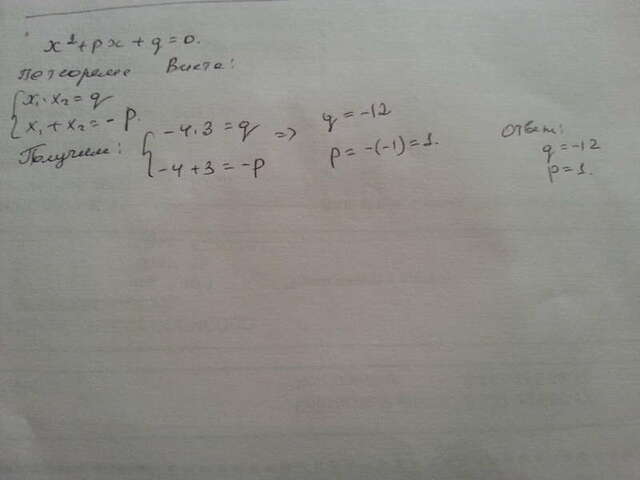 x²+px+q=0.
По теореме Виета:
{x₁·x₂=q
x₁+x₂=-p.
Получим: {-4·3=q => q=-12
-4+3=-p p=-(-1)=1.
Ответ:
q=-12
p=1.